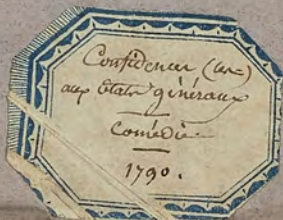 Confidences (les)
aux états généraux
Comédie.
1790.